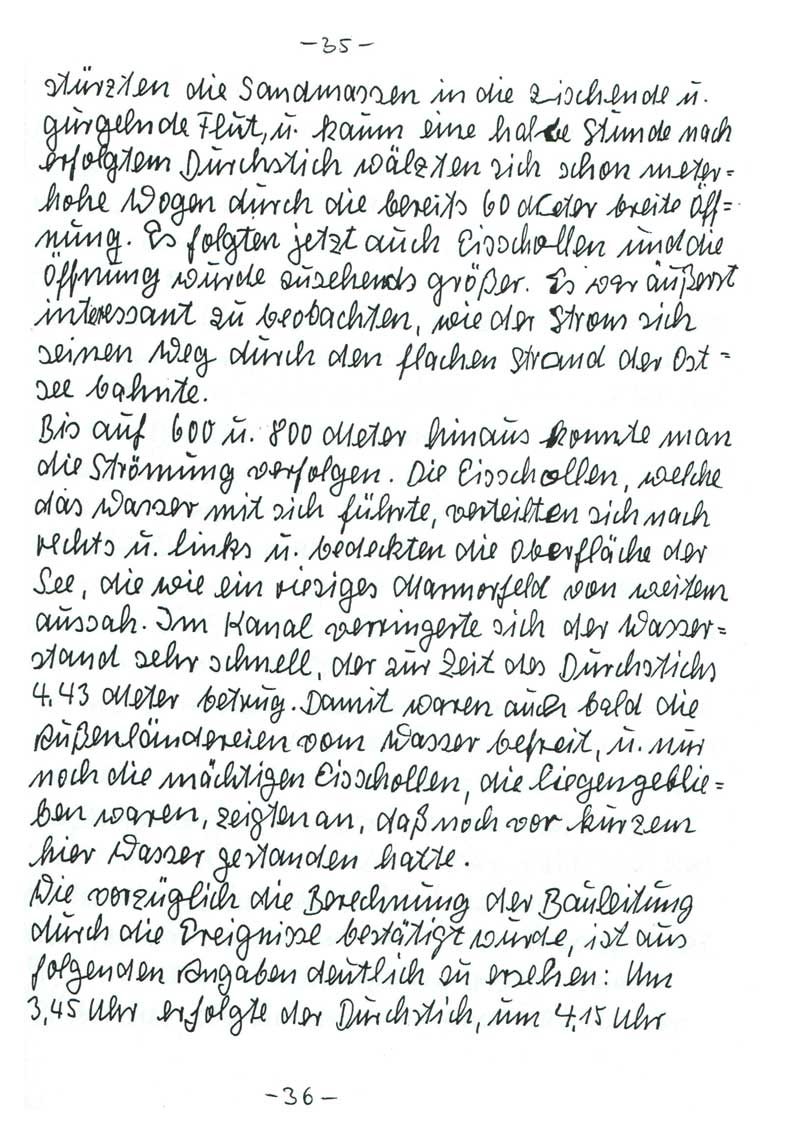 -35-
stürzten die Sandmassen in die zischende u.
gurgelnde Flut, u. kaum eine halbe Stunde nach
erfolgtem Durchstich wälzten sich schon meter=
hohe Wogen durch die bereits 60 Meter breite Öff=
nung. Es folgten jetzt auch Eisschollen und die
Öffnung wurde zusehends größer. Es war äußerst
interessant zu beobachten, wie der Strom sich
seinen Weg durch den flachen Strand der Ost=
see bahnte.
Bis auf 600 u. 800 Meter hinaus konnte man
die Strömung verfolgen. Die Eisschollen, welche
das Wasser mit sich führte, verteilten sich nach
rechts u. links u. bedeckten die Oberfläche der
See, die wie ein riesiges Marmorfeld von weitem
aussah. Im Kanal verringerte sich der Wasser=
stand sehr schnell, der zur Zeit des Durchstichs
4,43 Meter betrug. Damit waren auch bald die
Außenländereien vom Wasser befreit, u. nur
noch die mächtigen Eisschollen, die liegengeblie=
ben waren, zeigten an, daß noch vor kurzem
hier Wasser gestanden hatte.
Wie vorzüglich die Berechnung der Bauleitung
durch die Ereignisse bestätigt wurde, ist aus
folgenden Angaben deutlich zu ersehen: Um
3,45 Uhr erfolgte der Durchstich, um 4,15 Uhr
-36-